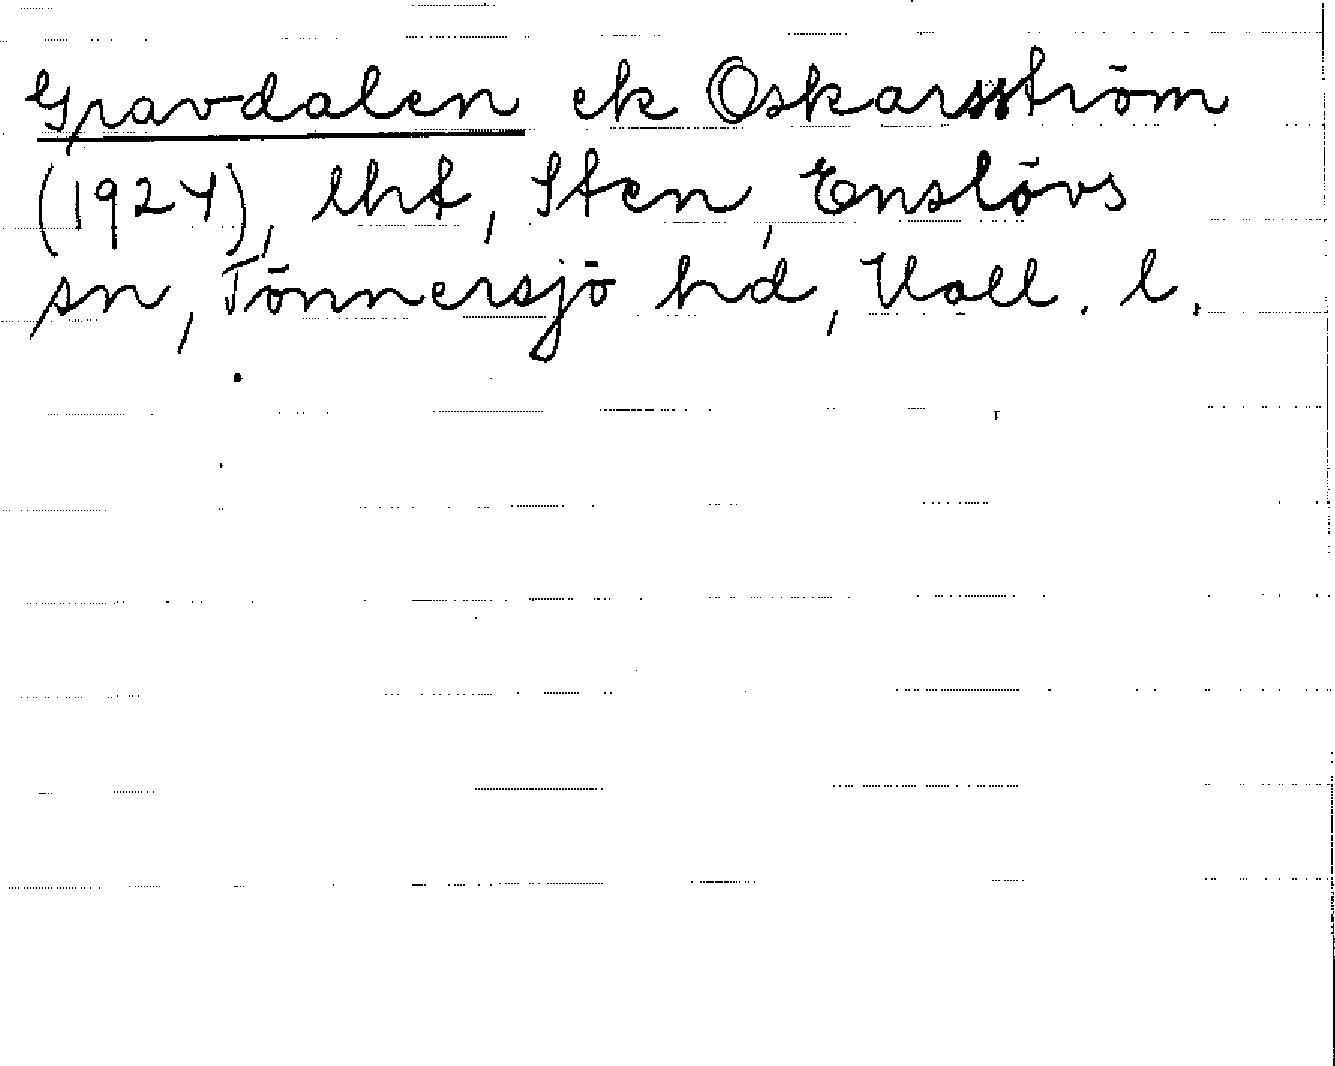 Gravdalen ek Oskarsström
(1924), lht, Sten, Enslövs
sn, Tönnersjö hd, Hall. l.